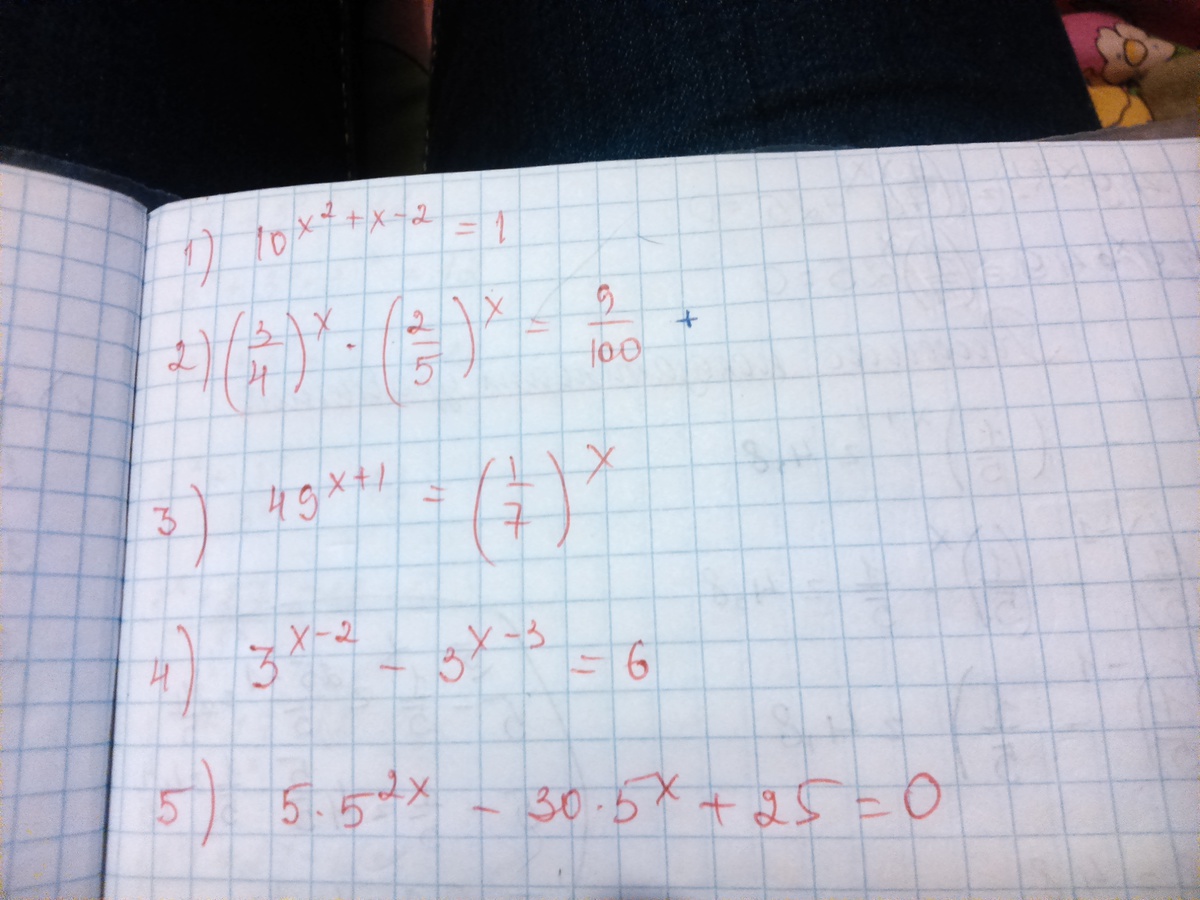 1) 10^{x^2+x-2} = 1
2) (3/4)^x · (2/5)^x = 9/100 +
3) 49^{x+1} = (1/7)^x
4) 3^{x-2} - 3^{x-3} = 6
5) 5·5^{2x} - 30·5^x + 25 = 0